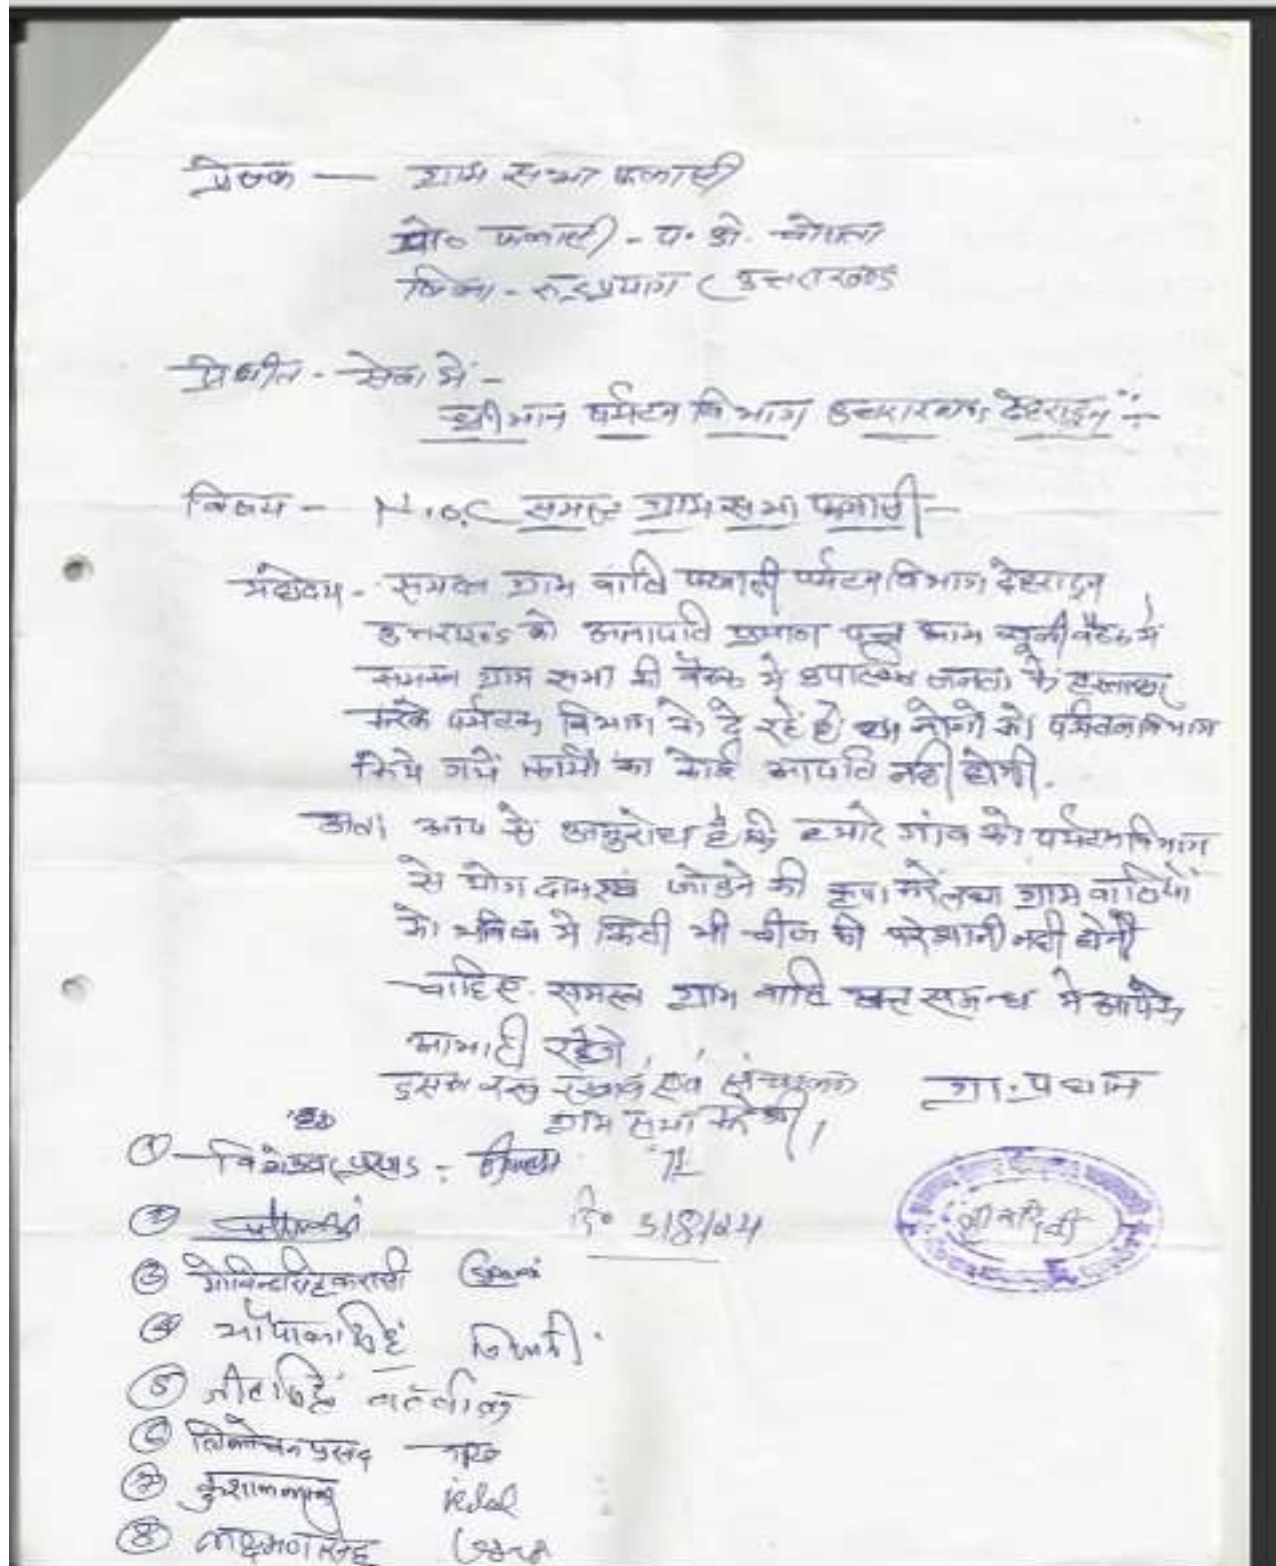 प्रेषक — ग्राम सभा फलासी
पो० फलासी - प. ओ. चोपता
जिला - रूद्रप्रयाग ( उत्तराखण्ड
प्रेषीत - सेवा में -
श्रीमान पर्यटन विभाग उत्तराखण्ड देहरादून
विषय - N.O.C समस्त ग्राम सभा फलासी -
महोदय - समस्त ग्राम वासि फलासी पर्यटन विभाग देहरादून
उत्तराखण्ड को अनापति प्रमाण पत्र आम खुली बैठक में
समस्त ग्राम सभा की बैठक मे उपास्थित जनता के हस्ताक्षर
करके पर्यटन विभाग को दे रहे है हम लोगो को पर्यटन विभाग
किये गये कार्यो का कोई आपति नही होगी.
अतः आप से अनुरोध है कि हमारे गांव को पर्यटन विभाग
से योगदान एवं जोडने की कृपा करें तथा ग्राम वासियों
को भविष्य मे किसी भी चीज की परेशानी नही होनी
चाहिए. समस्त ग्राम वासि इस सम्बन्ध मे आपके
आभारी रहेगे
इसका रख रखाव एवं संचालन ग्रा. प्रधान
ग्राम सभा करेगी।
① - विशेश्वर प्रसाद -
②
दि० 5/8/24
③ गोविन्द सिंह
④ गोपाल सिंह
⑤ जीत सिंह
⑥ त्रिलोचन प्रसाद
⑦ कुशाल लाल
⑧ लक्ष्मण सिंह